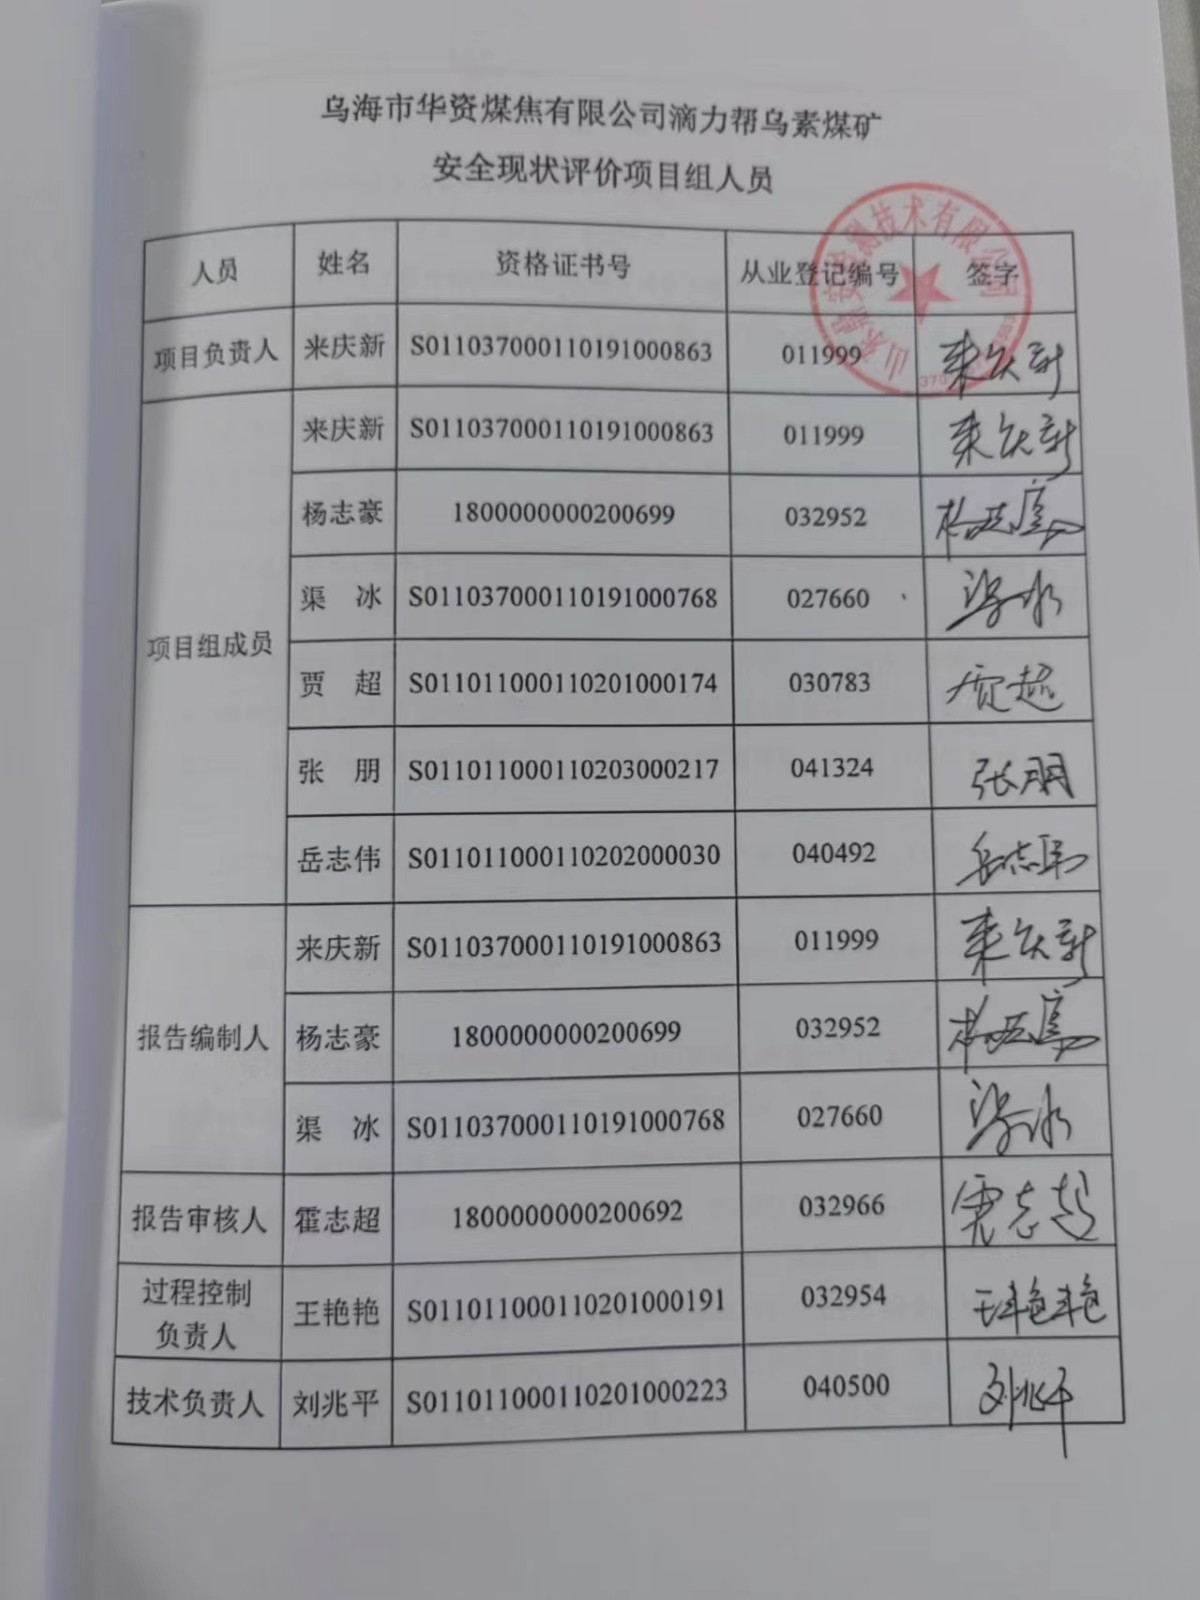 乌海市华资煤焦有限公司滴力帮乌素煤矿
安全现状评价项目组人员
人员 姓名 资格证书号 从业登记编号 签字
项目负责人 来庆新 S011037000110191000863 011999 来庆新
项目组成员 来庆新 S011037000110191000863 011999 来庆新
杨志豪 1800000000200699 032952 杨志豪
渠 冰 S011037000110191000768 027660 渠冰
贾 超 S011011000110201000174 030783 贾超
张 朋 S011011000110203000217 041324 张朋
岳志伟 S011011000110202000030 040492 岳志伟
报告编制人 来庆新 S011037000110191000863 011999 来庆新
杨志豪 1800000000200699 032952 杨志豪
渠 冰 S011037000110191000768 027660 渠冰
报告审核人 霍志超 1800000000200692 032966 霍志超
过程控制
负责人 王艳艳 S011011000110201000191 032954 王艳艳
技术负责人 刘兆平 S011011000110201000223 040500 刘兆平